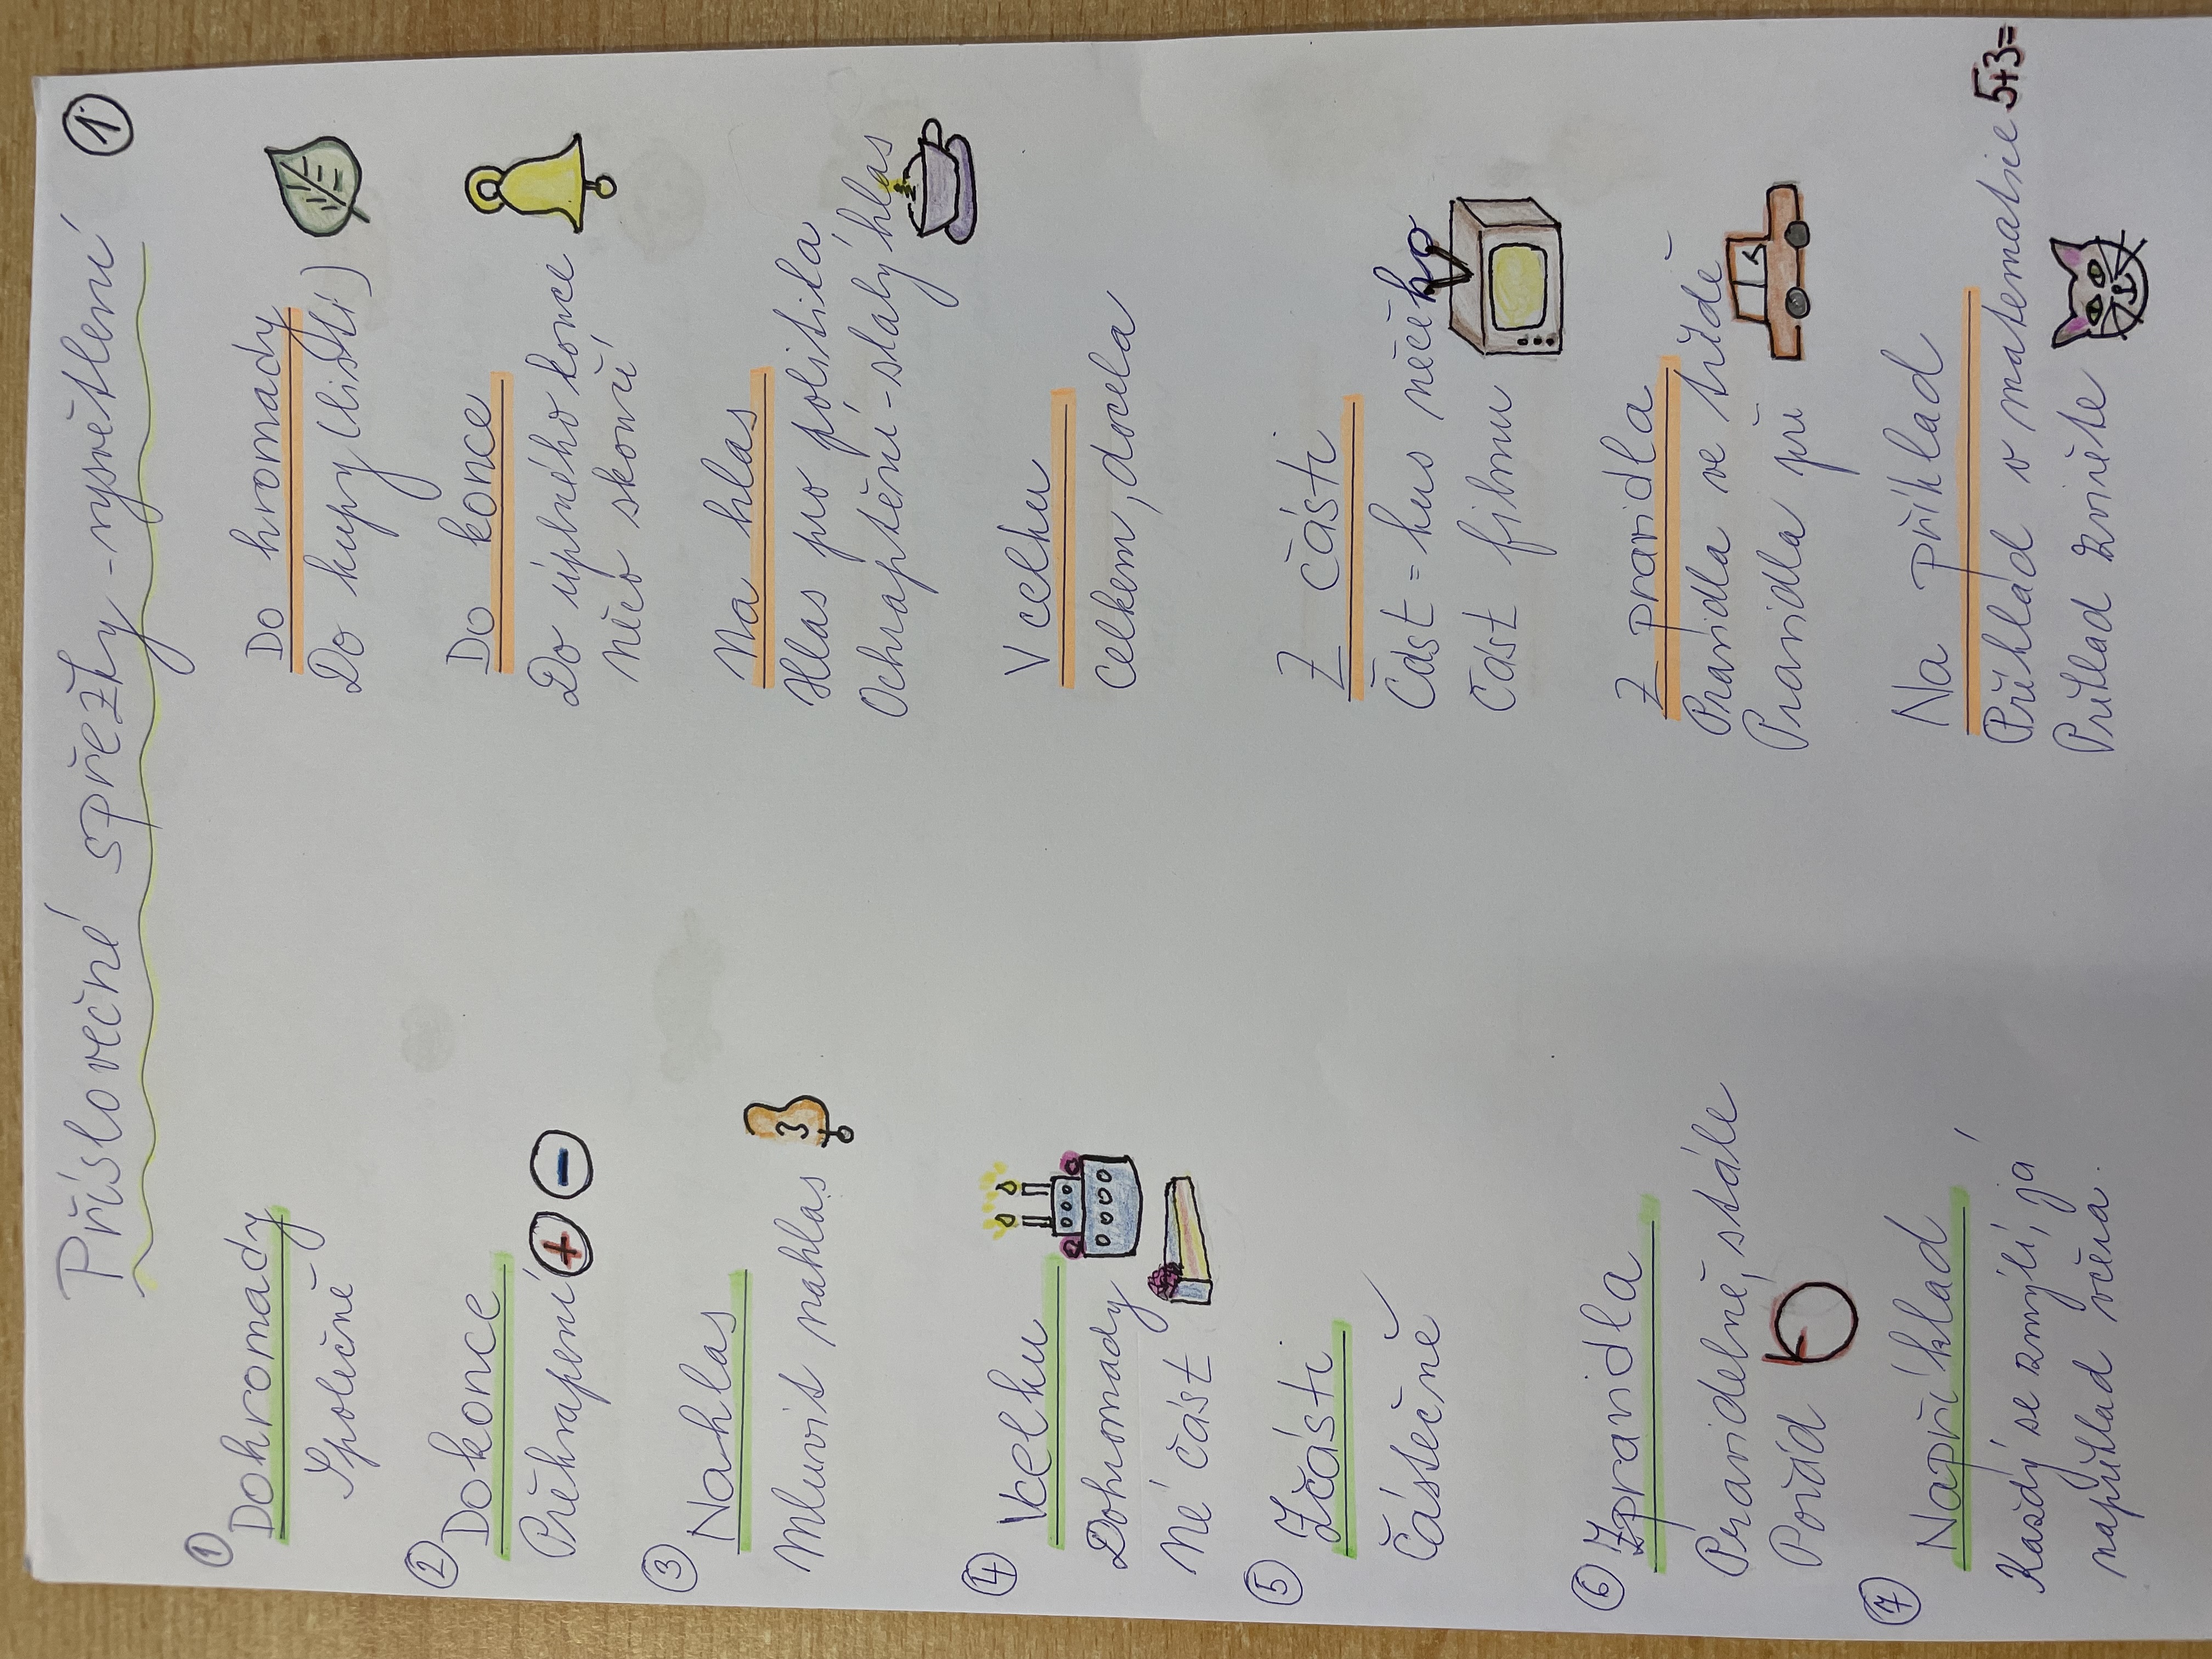 Příslovečné spřežky - vysvětlení
1
① Dohromady
Společně
Do hromady
Do kupy (listí)
② Dokonce
Překvapení + -
Do konce
Do úplného konce
něco skončí
③ Nahlas
Mluvit nahlas
Na hlas
Hlas pro political
Ochraptění - slabý hlas
④ Vcelku
Dohromady
Né část
V celku
Celkem, docela
⑤ Zčásti
Částečně
Z části
Část = kus něčeho
Část filmu
⑥ Zpravidla
Pravidelně, stále
Pořád
Z pravidla
Pravidla ve třídě
Pravidla při
⑦ Například
Každý se zmýlí, já
například včera.
Na příklad
Příklad v matematice 5+3=
Příklad zvířete